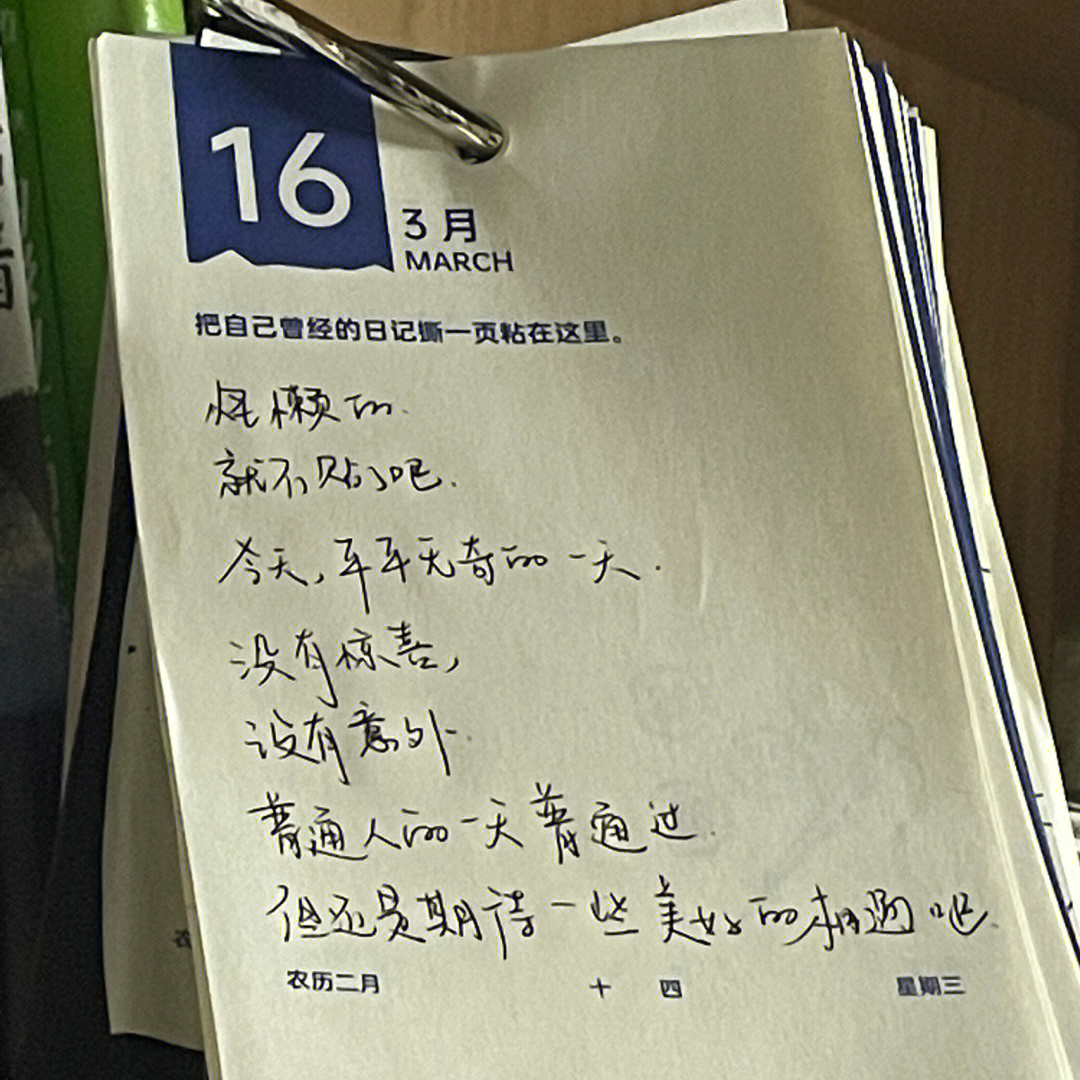 16
3月
MARCH
把自己曾经的日记撕一页粘在这里。
怪懒的.
就不贴了吧.
今天,平平无奇的一天.
没有惊喜,
没有意外.
普通人的一天普通过.
但还是期待一些美好的相遇吧.
农历二月 十四 星期三